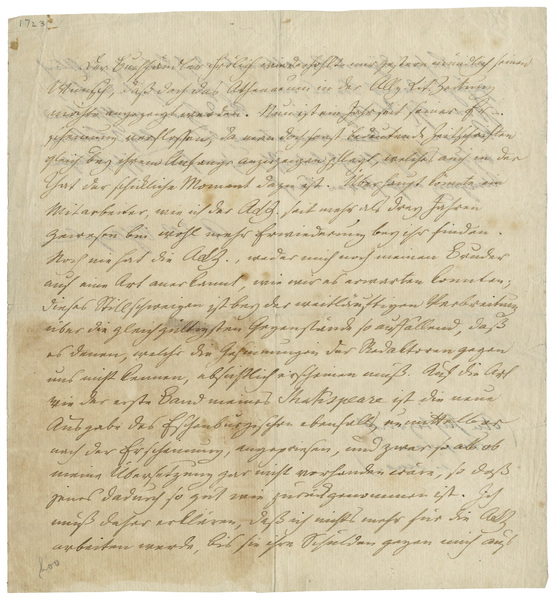 1723
Der Buchhändler Frölich wiederholte mir gestern mündlich seinen
Wunsch, daß doch das Athenaeum in der Allg. Lit. Zeitung
möchte angezeigt werden. Nun ist ein Jahr seit seiner Er-
scheinung verflossen, da man doch sonst bedeutende Zeitschriften
gleich bey ihrem Anfange anzuzeigen pflegt, welches auch in der
That der schickliche Moment dazu ist. Überhaupt könnte ein
Mitarbeiter, wie ich der ALZ. seit mehr als drey Jahren
gewesen bin wohl mehr Erwiederung bey ihr finden.
Noch nie hat die ALZ., weder mich noch meinen Bruder
auf eine Art anerkannt, wie wir es erwarten konnten;
dieses Stillschweigen ist bey der weitläuftigen Verbreitung
über die gleichgültigsten Gegenstände so auffallend, daß
es denen, welche die Gesinnungen der Redaktoren gegen
uns nicht kennen, absichtlich erscheinen muß. Auf die Art
wie der erste Band meines Shakspeare ist die neue
Ausgabe des Eschenburgischen ebenfalls, unmittelbar
nach der Erscheinung, angepriesen, und zwar so als ob
meine Übersetzung gar nicht vorhanden wäre, so daß
jenes dadurch so gut wie zurückgenommen ist. Ich
muß daher erklären, daß ich nichts mehr für die ALZ
arbeiten werde, bis sie ihre Schulden gegen mich und